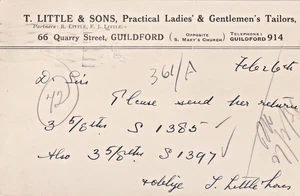 T. LITTLE & SONS, Practical Ladies' & Gentlemen's Tailors,
Partners: R. LITTLE, F. J. LITTLE
66 Quarry Street, GUILDFORD (OPPOSITE S. MARY'S CHURCH) TELEPHONE: GUILDFORD 914
Feb 26th
361/A
Dr Sirs
42
Please send per return
3 5/8ths S 1385
Also 3 5/8ths S 1397
& oblige T. Little & Sons